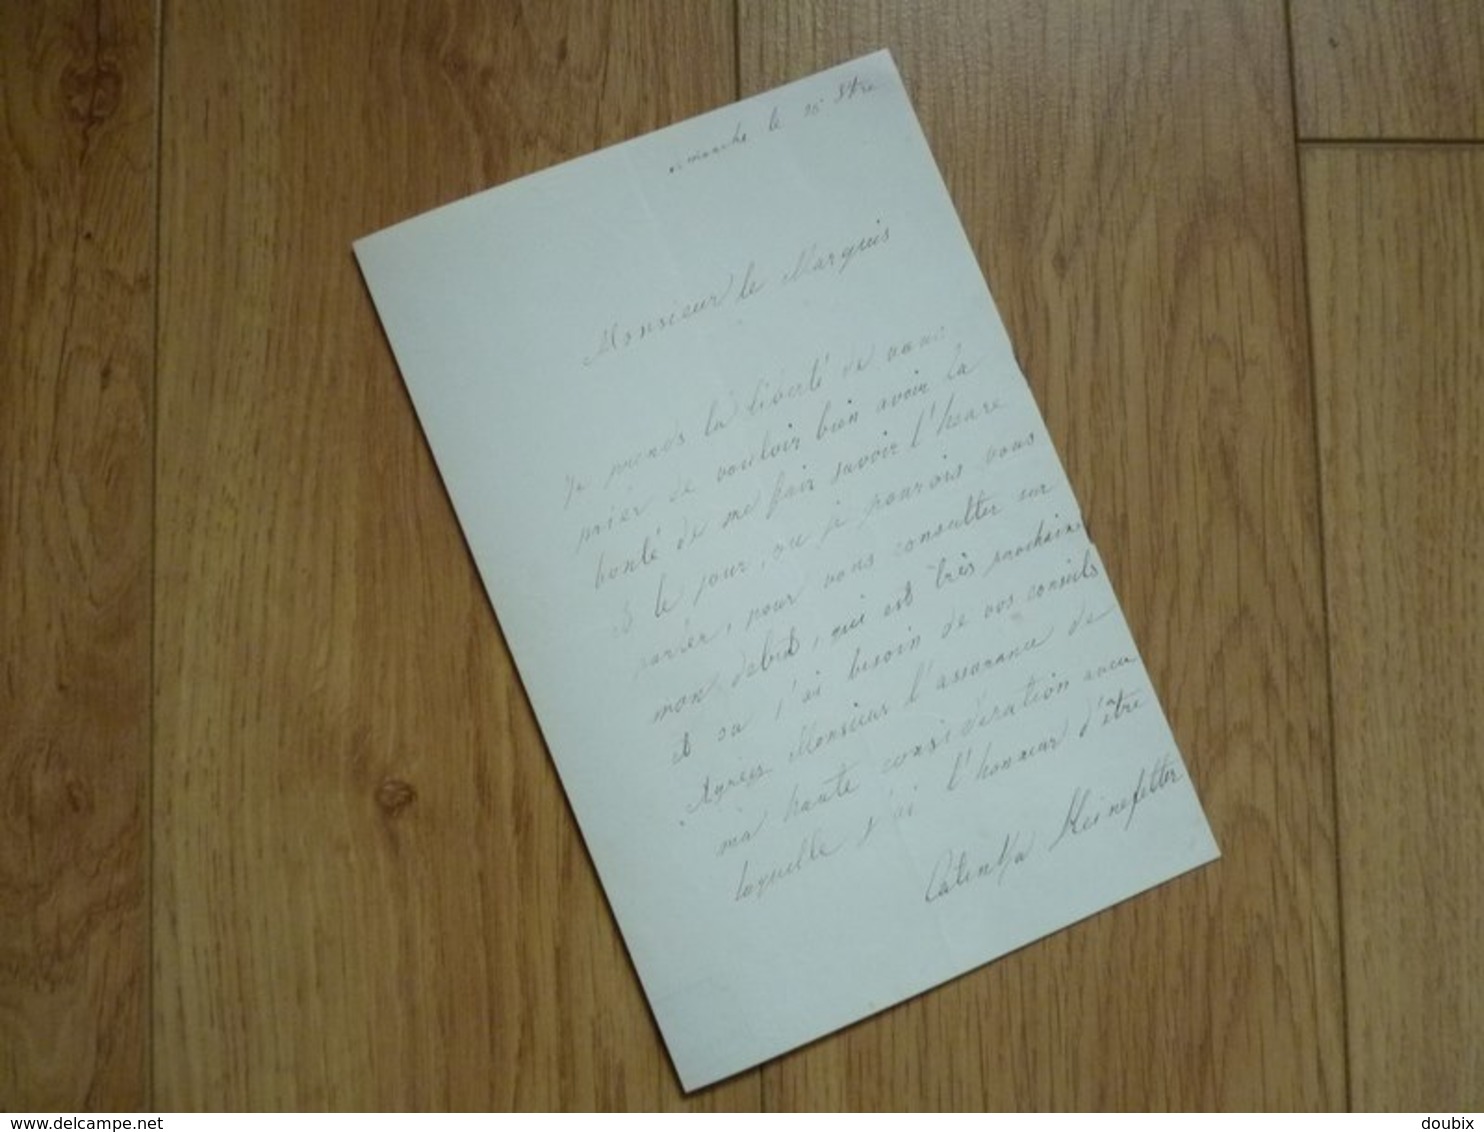 Dimanche le 25
Monsieur le Marquis
Je prends la liberté de vous
prier de vouloir bien avoir la
bonté de me fair savoir l'heure
et le jour, ou je pourois vous
parler, pour vous consulter sur
mon debut, qui est très prochain
et ou j'ai besoin de vos conseils
Agréez Monsieur l'assurance de
ma haute consideration avec
laquelle j'ai l'honneur d'être
Catinka Heinefetter
www.delcampe.net
doubix